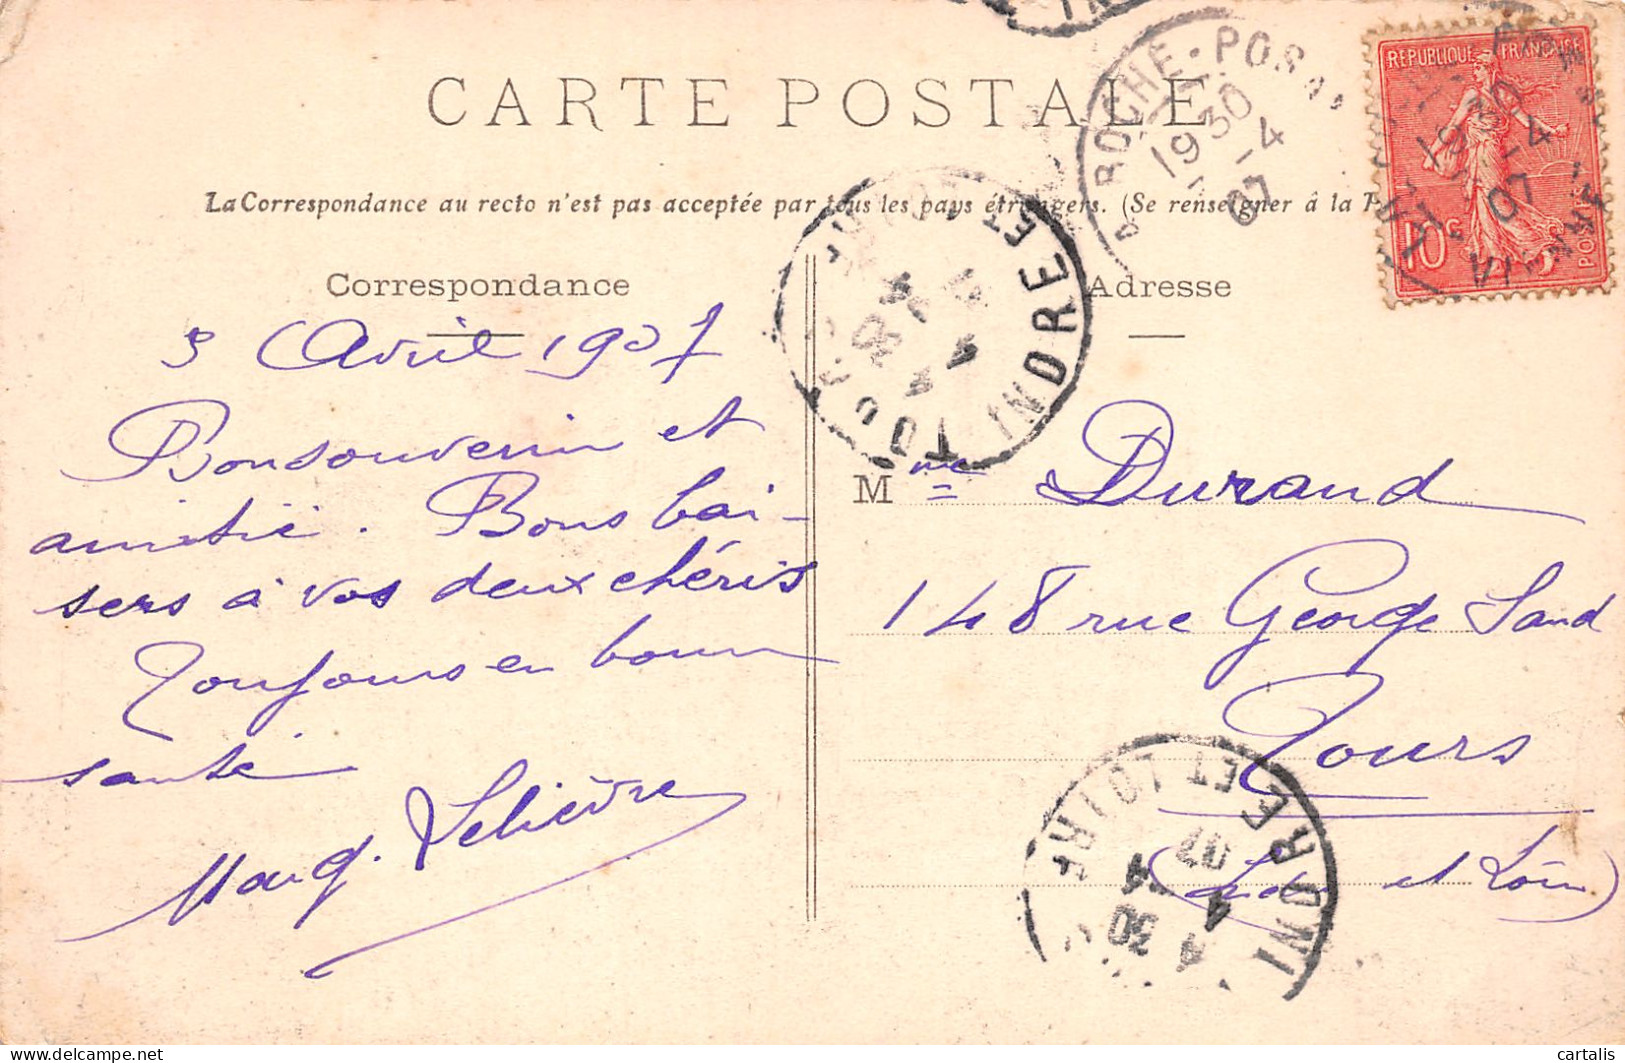 CARTE POSTALE
La Correspondance au recto n'est pas acceptée par tous les pays étrangers. (Se renseigner à la
Correspondance
3 Avril 1907
Bonsouvenir et
amitié. Bons bai-
sers à vos deux chéris
Toujours en bonne
santé
Marg. Lelièvre
Adresse
Mme Durand
148 rue George Sand
Tours
(Indre et Loire)
ROCHE-POSAY
1930
-4
07
REPUBLIQUE FRANÇAISE
10c
POSTES
TOURS
INDRE ET LOIRE
INDRE ET LOIRE
4 30
4 -4
07
delcampe.net
cartalis